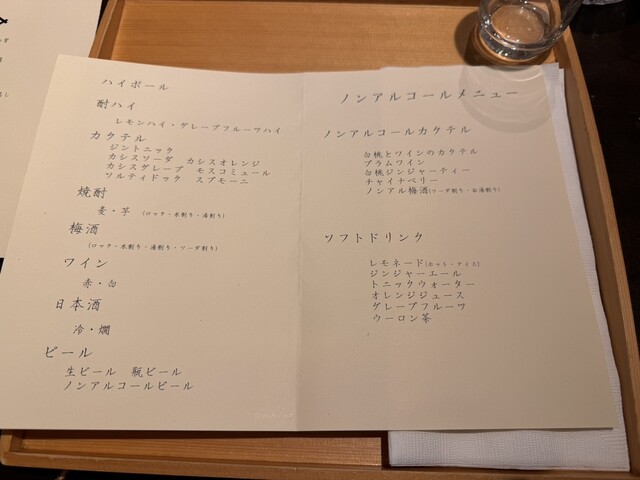 ハイボール
酎ハイ
レモンハイ・グレープフルーツハイ
カクテル
ジントニック
カシスソーダ　カシスオレンジ
カシスグレープ　モスコミュール
ソルティドック　スプモーニ
焼酎
麦・芋　(ロック・水割り・湯割り)
梅酒
(ロック・水割り・湯割り・ソーダ割り)
ワイン
赤・白
日本酒
冷・燗
ビール
生ビール　瓶ビール
ノンアルコールビール
ノンアルコールメニュー
ノンアルコールカクテル
白桃とワインのカクテル
プラムワイン
白桃ジンジャーティー
チャイナベリー
ノンアル梅酒(ソーダ割り・お湯割り)
ソフトドリンク
レモネード(ホット・アイス)
ジンジャーエール
トニックウォーター
オレンジジュース
グレープフルーツ
ウーロン茶